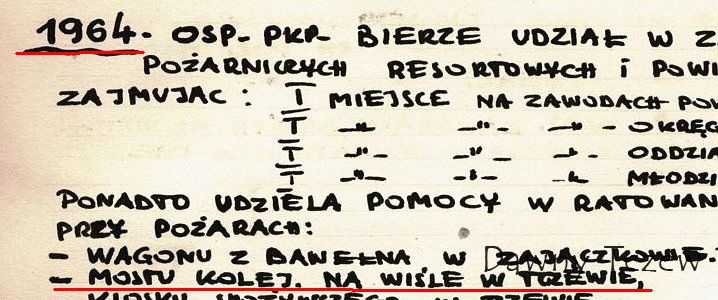 1964. OSP- PKP- BIERZE UDZIAŁ W Z
POŻARNICZYCH RESORTOWYCH i POWI
ZAJMUJĄC : I MIEJSCE NA ZAWODACH POW
I -"- -"- -"- - OKRĘG
I -"- -"- -"- - ODDZIA
I -"- -"- -"- MŁODZI
PONADTO UDZIELA POMOCY W RATOWAN
PRZY POŻARACH:
- WAGONU Z BAWEŁNĄ W ZAJĄCZKOWIE.
Dawny Tczew
- MOSTU KOLEJ. NA WIŚLE W TCZEWIE,